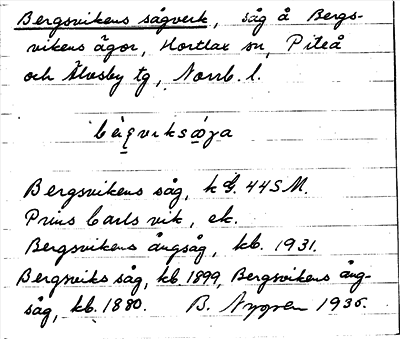 Bergsvikens sågverk, såg å Bergs-
vikens ägor, Hortlax sn, Piteå
och Älvsby tg, Norrb. l.
Bergsvikens såg, 44 S M.
Prins Carls vik, ek.
Bergsvikens ångsåg, kb. 1931.
Bergsviks såg, kb 1899, Bergsvikens ång-
såg, kb. 1880. B. Nygren 1935.